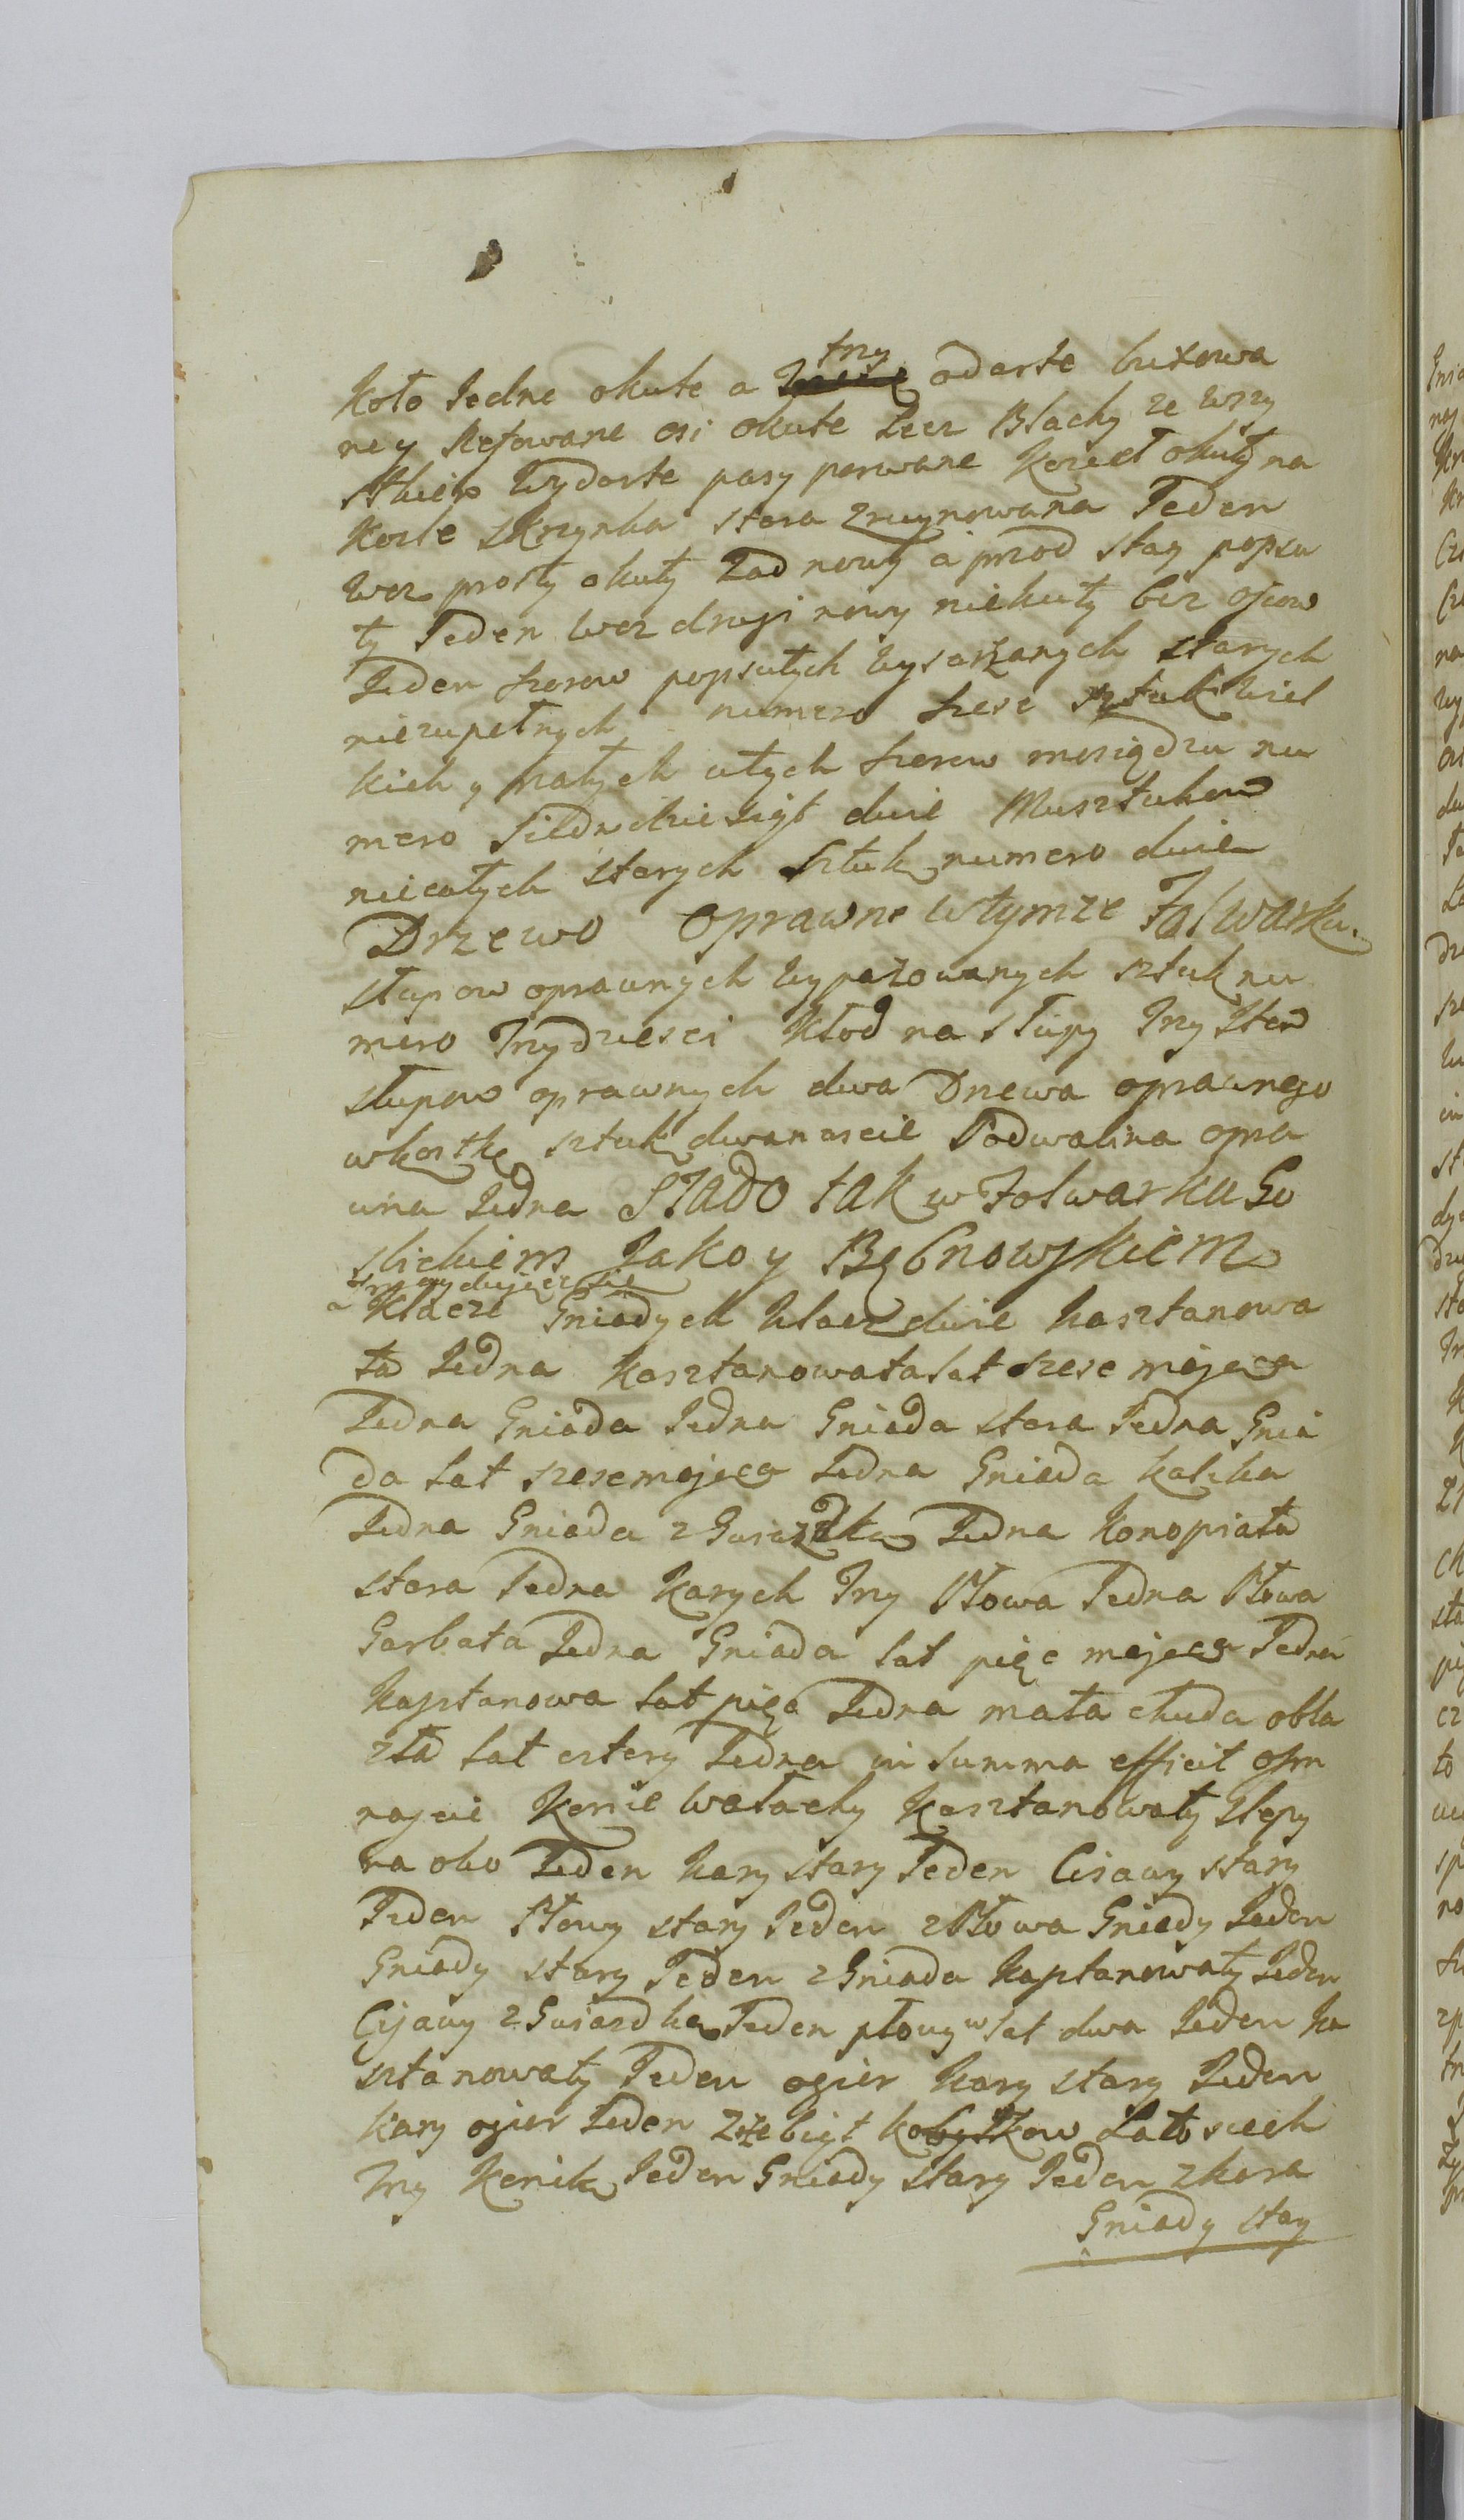 Koło Jedne okute a try odarte buxowa
ne y Refowane osi okute Lecz Blachy ze wszy
stkiego wydarte pasy porwane Kozieł okuty na
Kozle skrzynka stara zruynowana Jeden
woz prosty okuty Zad nowy a przod stary popsu
ty Jeden woz drugi nowy niekuty bez osiow
Jeden szorow popsutych wysarżanych starych
niezupełnych numero szesc sztuk wiel
kich y małych całych szorow mosiądzu nu
mero siedmdziesiąt dwie Musztukow
niecałych starych sztuk numero dwie
Drzewo Oprawne wtymze Folwarku.
słupow oprawnych wypazowanych sztuk nu
mero Trzydziesci Kłod na słupy Trzy
słupow oprawnych dwa Drzewa oprawnego
wkostkę sztuk dwanascie Podwalina opra
wna Jedna STADO tak w Folwarku Go
slickiem Jako y Bębnowskiem
znayduiące się
a Klacze Gniadych klacz dwie kasztanowa
ta Jedna kasztanowata lat szesc maiąca
Jedna Gniada Jedna Gniada stara Jedna Gnia
da lat szesc maiąca Jedna Gniada kaleka
Jedna Gniada z Gwiazdką Jedna Konopiata
stara Jedna Karych Trzy Płowa Jedna Płowa
Garbata Jedna Gniada lat pięc maiąca Jedna
kasztanowa lat pięc Jedna mała chuda obla
zła lat cztery Jedna in summa efficit osm
nascie Konie wałachy Kasztanowaty slepy
na oko Jeden kary stary Jeden Cisawy stary
Jeden Płowy stary Jeden z Płowa Gniady Jeden
Gniady stary Jeden z Gniada kasztanowaty Jeden
Cisawy z Gwiazdką Jeden płowy w lat dwa Jeden ka
sztanowaty Jeden ogier kary stary Jeden
kary ogier Jeden Zrebiąt kobyłkow Latosiech
Trzy Konik Jeden Gniady stary Jeden z kara
Gniady stary